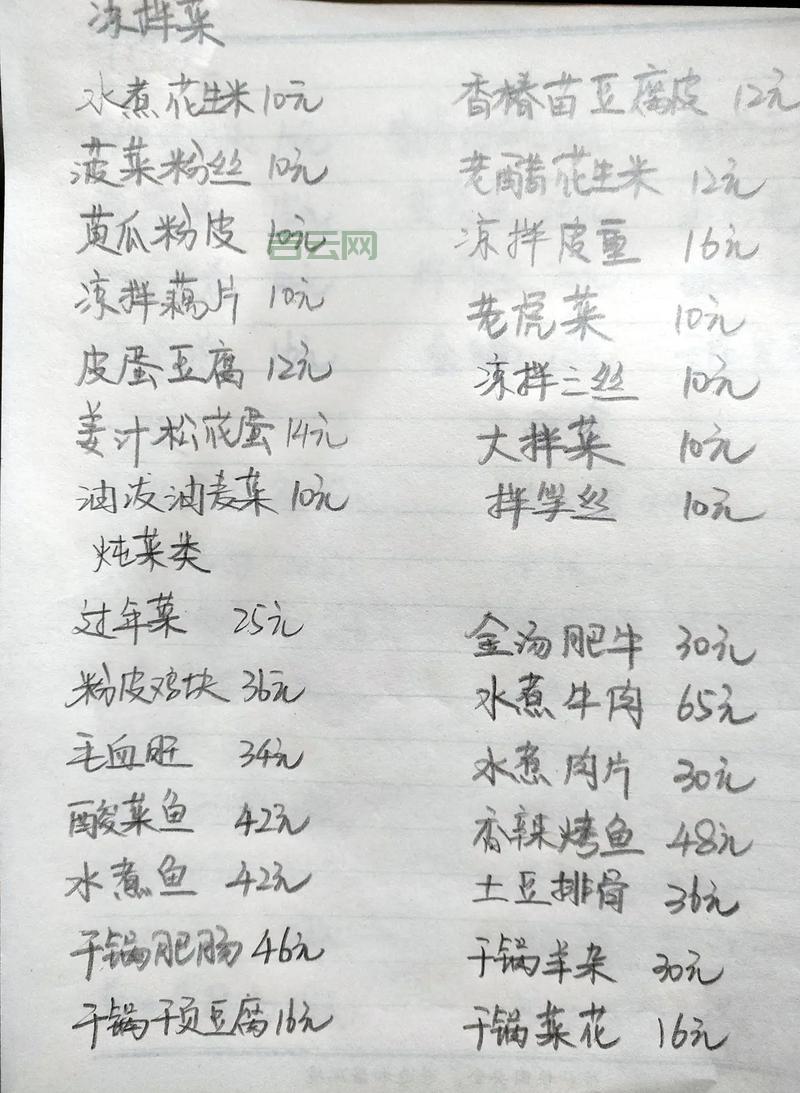 凉拌菜
水煮花生米 10元 香椿苗豆腐皮 12元
菠菜粉丝 10元 老醋花生米 12元
黄瓜粉皮 10元 凉拌皮蛋 16元
凉拌藕片 10元 老虎菜 10元
皮蛋豆腐 12元 凉拌三丝 10元
姜汁松花蛋 14元 大拌菜 10元
油泼油麦菜 10元 拌笋丝 10元
炖菜类
过年菜 25元 金汤肥牛 30元
粉皮鸡块 36元 水煮牛肉 65元
毛血旺 34元 水煮肉片 30元
酸菜鱼 42元 香辣烤鱼 48元
水煮鱼 42元 土豆排骨 36元
干锅肥肠 46元 干锅羊杂 30元
干锅干页豆腐 16元 干锅菜花 16元